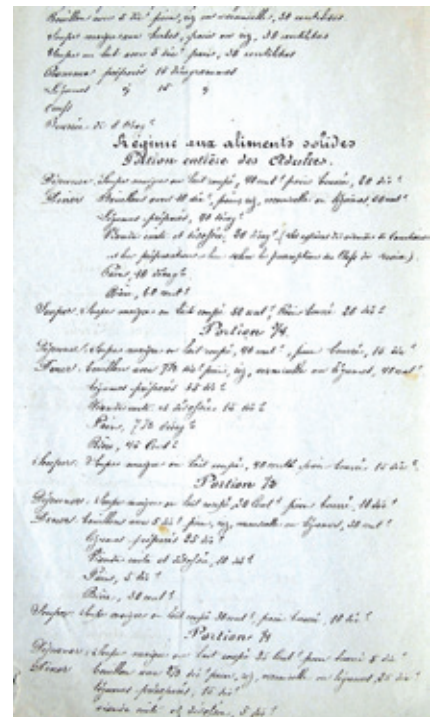 Bouillon avec 5 déc.s pain, riz ou vermicelles, 30 centilitres
Soupe maigre aux herbes, pain ou riz, 30 centilitres
Soupe au lait avec 5 déc.s pain, 30 centilitres
Pruneaux préparés 15 décagrammes
Légumes id 15 id
Oeufs
de 2 décag.s
Régime aux aliments solides
Ration entière des Adultes.
Déjeuner. Soupe maigre ou lait coupé, 40 cent.s pain beurré, 20 déc.s
Diner Bouillon avec 10 déc.s pain, riz, vermicelle ou légumes, cent.s
Légumes préparés, décag.s
Viande cuite et désossée, décag.s (Les espèces de viandes
et leur préparation selon la prescription du Chef de service).
Pain, 10 décag.s
Bière, 60 cent.s
Souper. Soupe maigre ou lait coupé cent.s Pain beurré 20 déc.s
Portion 3/4
Déjeuner. Soupe maigre ou lait coupé, 40 cent.s, pain beurré, 15 déc.s
Diner. bouillon avec 7 1/2 déc.s pain, riz, vermicelle ou légumes, 40 cent.s
légumes préparés 35 déc.s
Viande cuite et désossée 15 déc.s
Pain, 7 1/2 décag.s
Bière, 45 Cent.s
Souper. Soupe maigre ou lait coupé, 40 cent.s pain beurré 15 déc.s
Portion 1/2
Déjeuner. Soupe maigre ou lait coupé 30 Cent.s pain beurré 10 déc.s
Diner bouillon avec 5 déc.s pain, riz, vermicelle ou légumes, 30 cent.s
légumes préparés 25 déc.s
Viande cuite et désossée, 10 déc.s
Pain, 5 déc.s
Bière, 30 cent.s
Souper Soupe maigre ou lait coupé 30 cent.s, pain beurré, 10 déc.s
Portion 1/4
Déjeuner. Soupe maigre ou lait coupé 25 Cent.s pain beurré 5 déc.s
Diner bouillon avec déc.s pain, riz, vermicelle ou légumes, 25 déc.s
légumes préparés, 15 déc.s
viande cuite et désossée, 5 déc.s